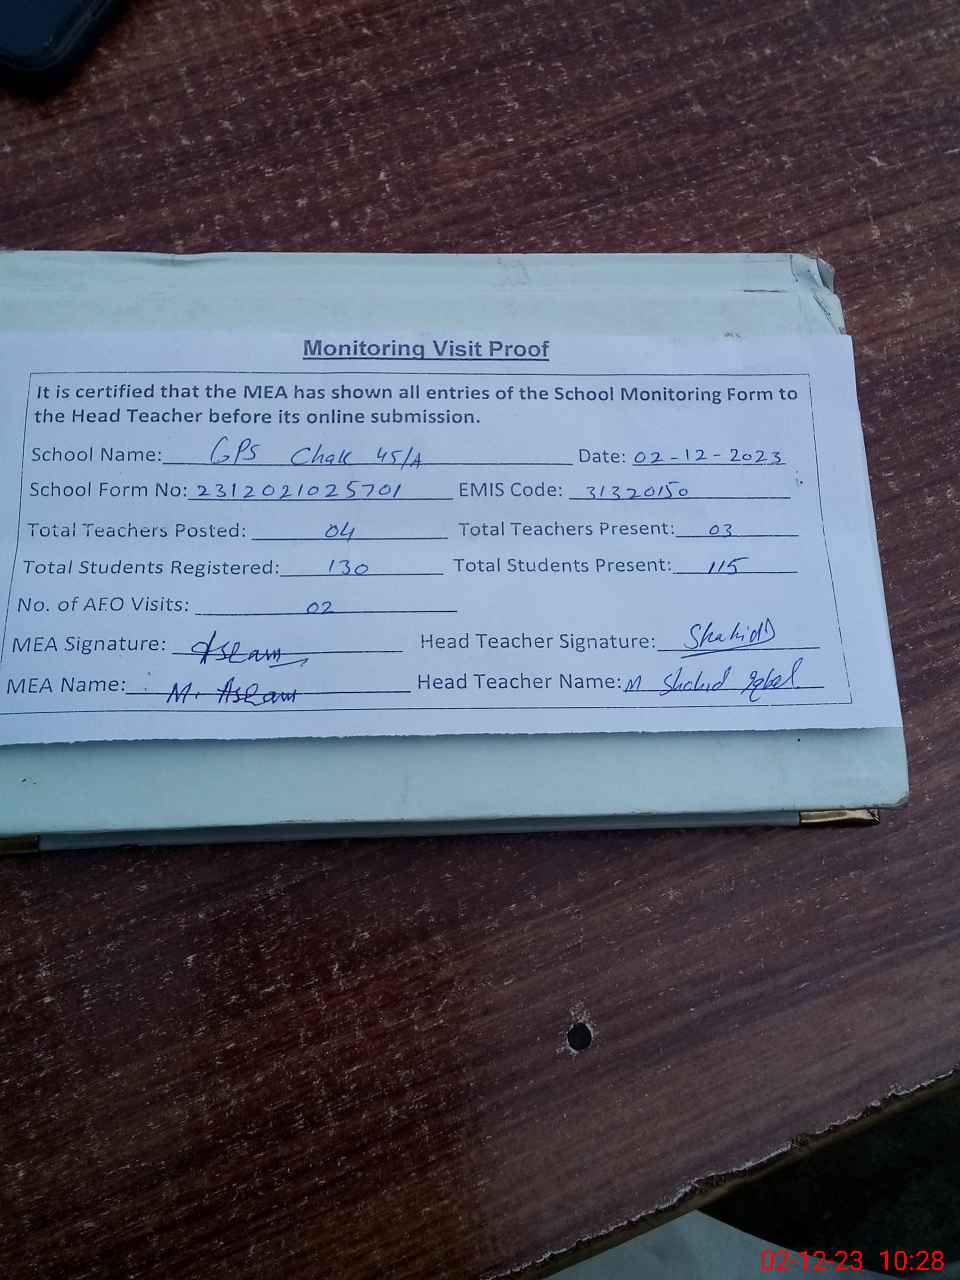 Monitoring Visit Proof
It is certified that the MEA has shown all entries of the School Monitoring Form to
the Head Teacher before its online submission.
School Name: GPS Chak 45/A Date: 02-12-2023
School Form No: 2312021025701 EMIS Code: 31320150
Total Teachers Posted: 04 Total Teachers Present: 03
Total Students Registered: 130 Total Students Present: 115
No. of AEO Visits: 02
MEA Signature: Aslam Head Teacher Signature: Shahid
MEA Name: M. Aslam Head Teacher Name: M Shahid Iqbal
02-12-23 10:28